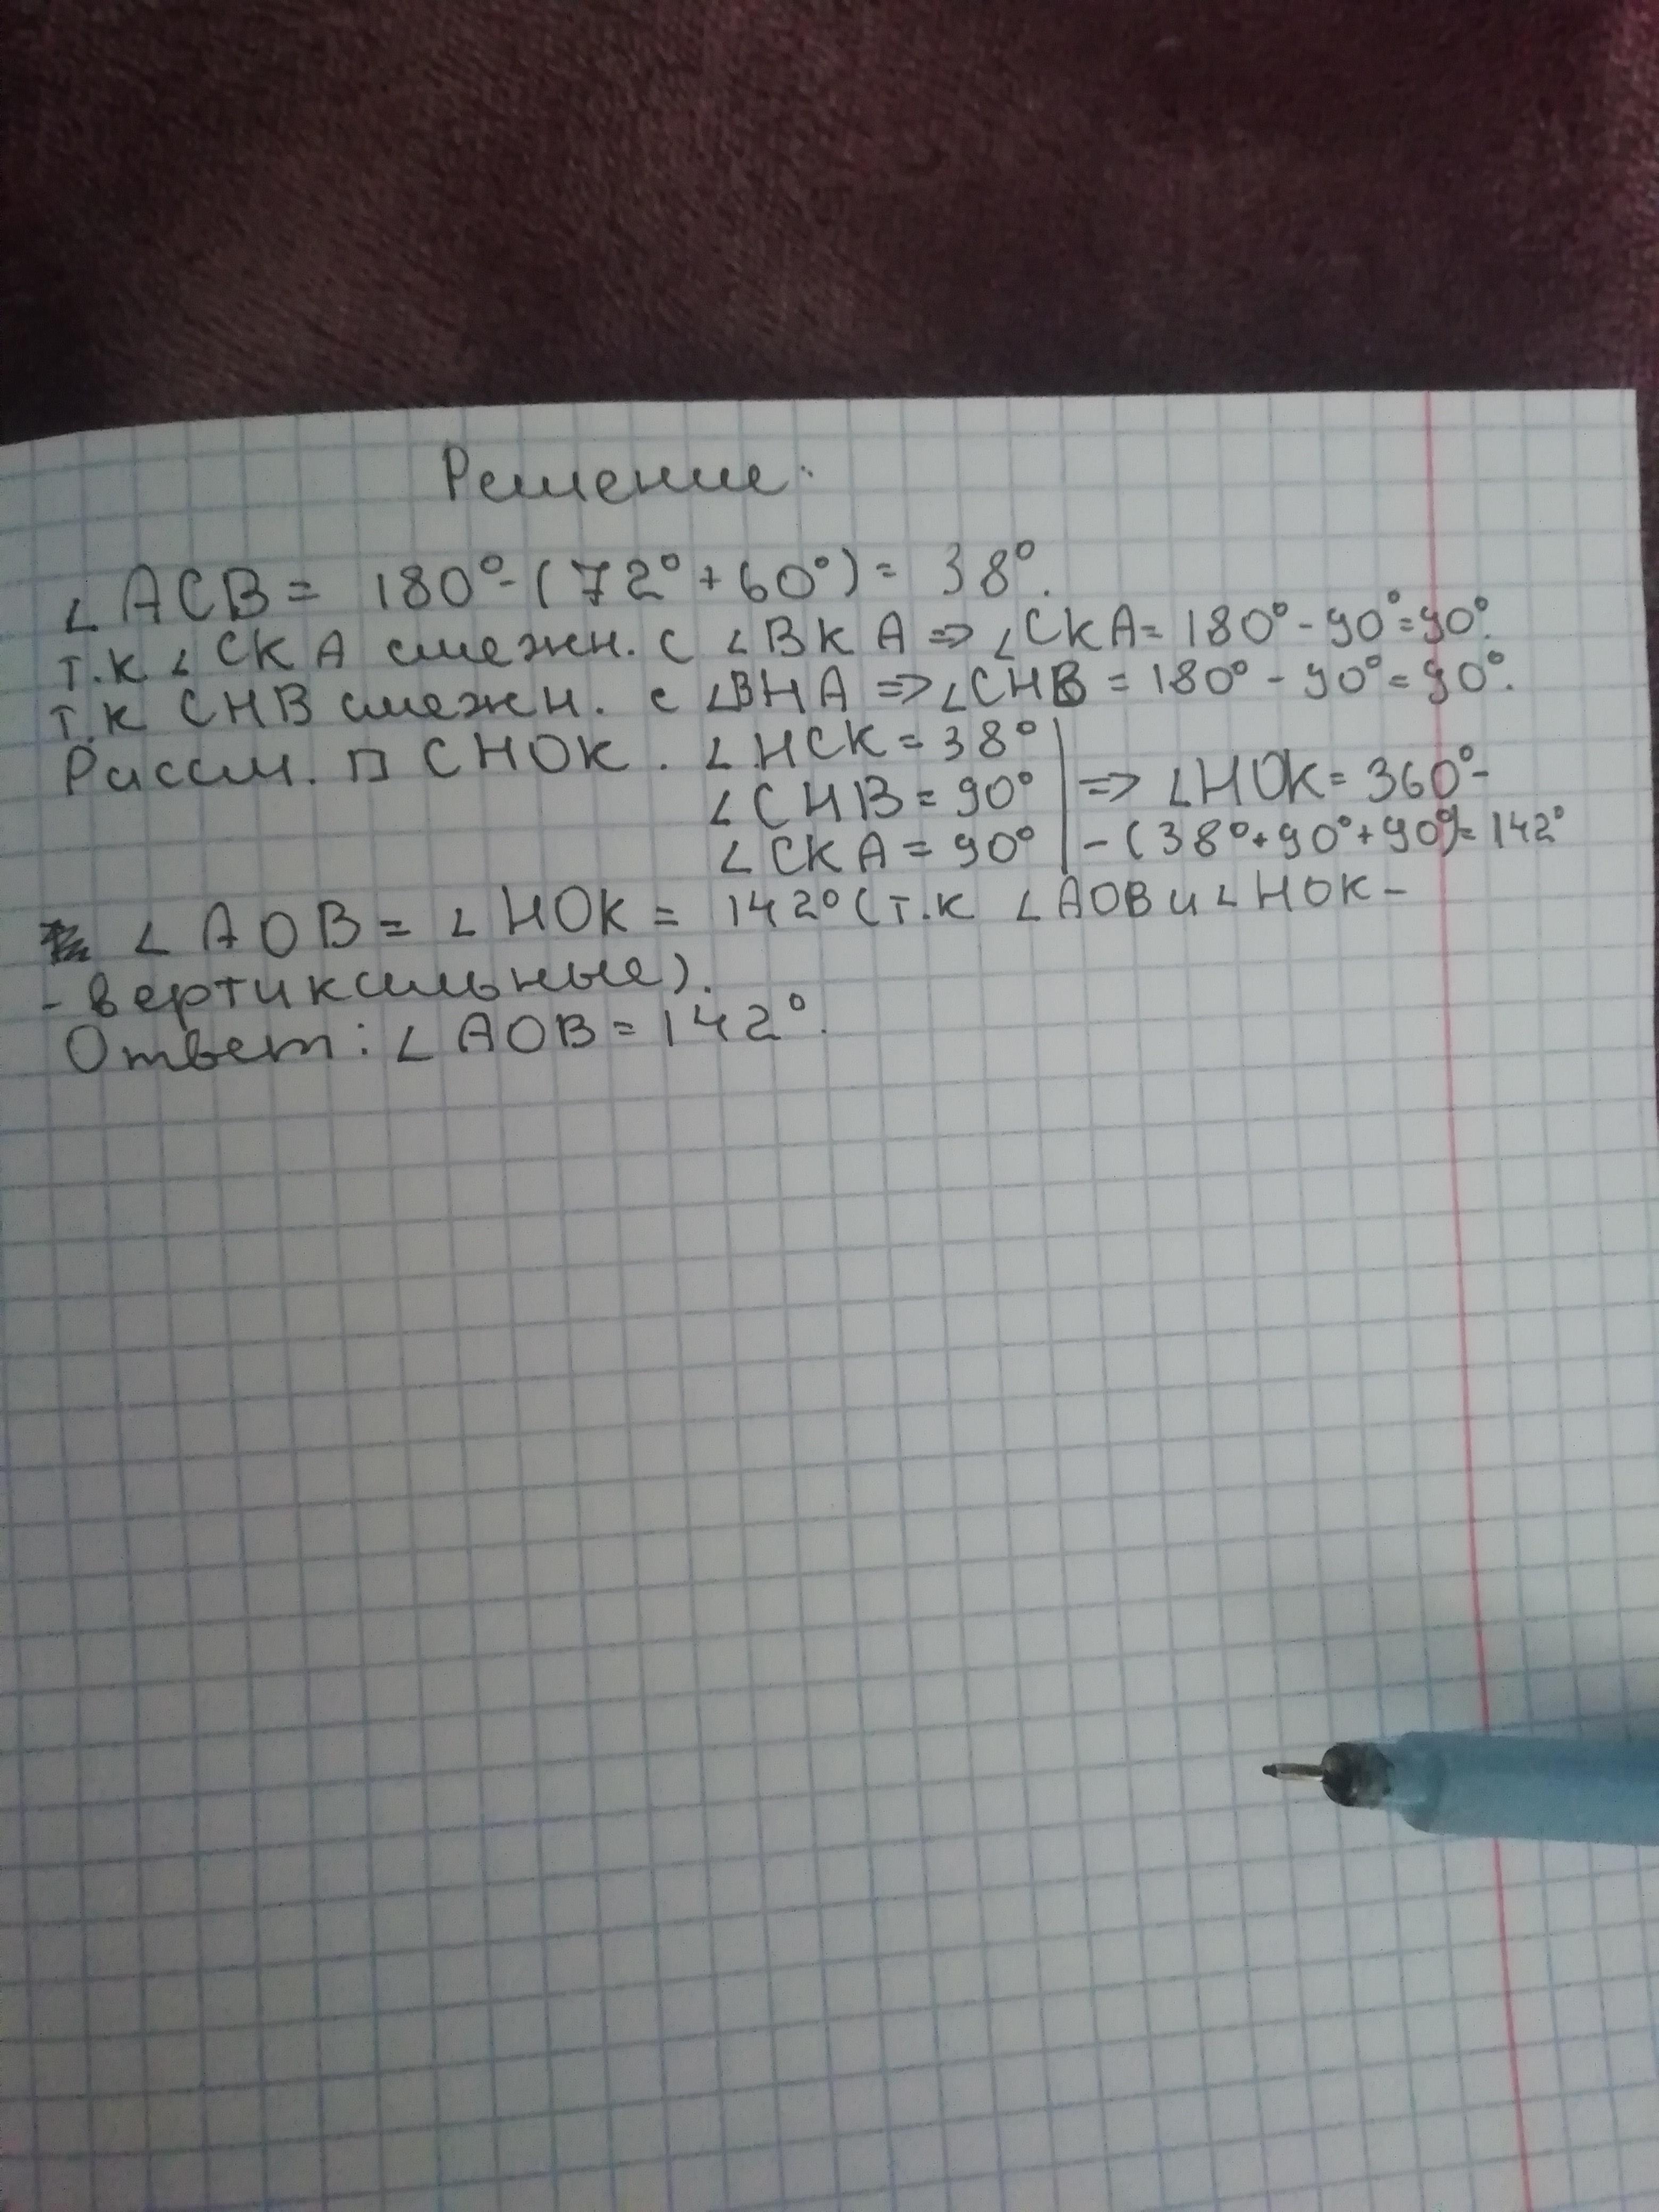 Решение:
∠ACB = 180°-(72°+60°) = 38°.
т.к ∠CKA смежн. с ∠BKA => ∠CKA = 180° - 90° = 90°.
т.к CHB смежн. с ∠BHA => ∠CHB = 180° - 90° = 90°.
Рассм. □ CHOK. ∠HCK = 38°
∠CHB = 90° | => ∠HOK = 360°-
∠CKA = 90° | -(38°+90°+90°)= 142°
∠AOB = ∠HOK = 142° (т.к ∠AOB и ∠HOK -
- вертикальные).
Ответ: ∠AOB = 142°.